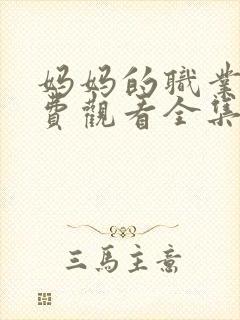 妈妈的職業
費觀看全集
三馬主意